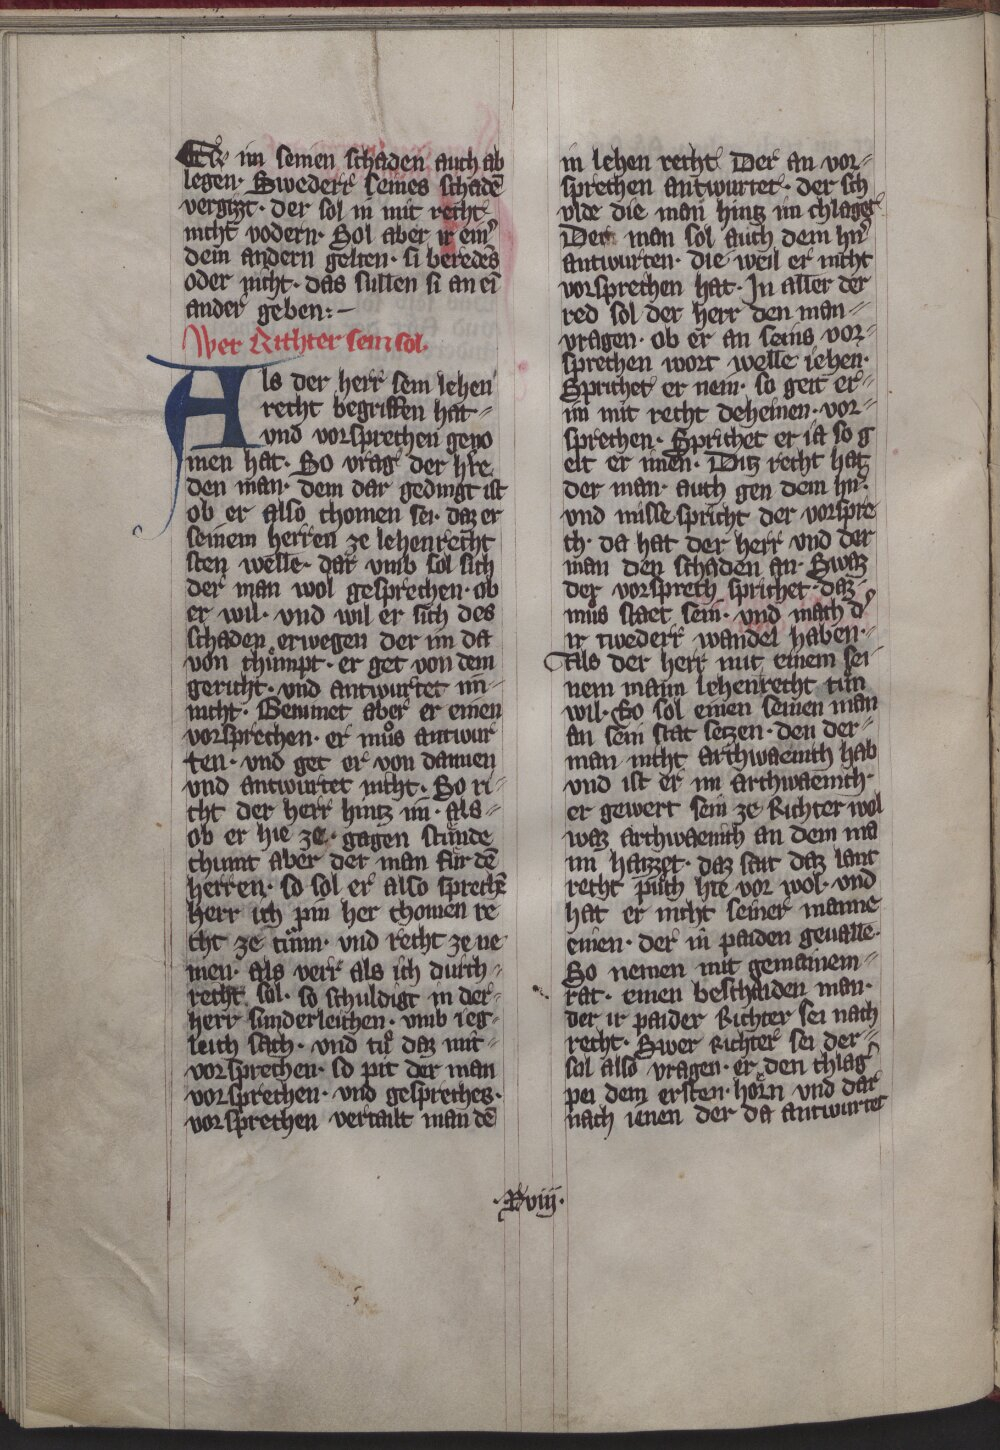 Er im seinen schaden auch ab
legen· Swederr seines schadē
vergizt· der sol in mit recht
nicht vodern· Sol aber ir einͬ
dem andern gelten· si beredēs
oder nicht· das sullen si an eī
ander geben:~
Wer Richter sein sol·
Als der herr sein lehen
recht begriffen hat⸗
vnd vorsprechen geno
men hat· So vrag der h're
den man· dem dar gedingt ist
ob er also chomen sei· daz er
seinem herren ze lehenrecht
sten welle· dar vmb sol sich
der man wol gesprechen· ob
er wil· vnd wil er sich des
schaden erwegen der im da
von chůmpt· er get von dem
gericht· vnd antwurtet im⸗
nicht· Benimet aber er einen
vorsprechen· er můs antwur
ten· vnd get er von dannen
vnd antwurtet nicht· So ri⸗
cht der herr hintz im· als⸗
ob er hie ze· gagen stůnde
chumt aber der man fur dē
herren· so sol er also sprechē
herr ich pin her chomen re
cht ze tůnn· vnd recht ze ne
men· als verr als ich durch⸗
recht sol· so schuldigt in der⸗
herr sunderleichen· vmb ieg⸗
leich sach· vnd tů daz mit⸗
vorsprechen· so pit der man
vorsprechen· vnd gesprechez·
vorsprechen vertailt man dē
in lehen recht Der an vor⸗
sprechen antwurtet· der sch
vlde die man hintz im chlaget
Der man sol auch dem hn͛
antwurten· die weil er nicht
vorsprechen hat· In aller der
red sol der herr den man⸗
vragen· ob er an seins vor⸗
sprechen wort welle iehen·
Sprichet er nein· so geit er⸗
im mit recht deheinen· vor⸗
sprechen· Sprichet er ia so g
eit er imen· Ditz recht hatz
der man· auch gen dem hn͛·
vnd misse spricht der vorspre
ch· da hat der herr vnd der
man den schaden an· Swaz
der vorsprech sprichet· daz·
můs staet sein· vnd mach d͛
ir twederr wandel haben·⸗
Als der herr mit einem sei
nem mann lehenrecht tůn
wil· So sol einen seinen man
an sein stat setzen· den der⸗
man nicht archwaenich hab
vnd ist er im archwaenich·
er gewert sein ze Richter wol
waz archwaenich an dem ma
im hazzet· daz sait daz lant
recht půch hie vor wol· vnd
hat er nicht seiner manne
einen· der in paiden geualle·
So nemen mit gemainem⸗
rat· einen beschaiden man·
der ir paider Richter sei nach
recht· Swer Richter sei der⸗
sol also vragen· er den chlag͛
pei dem ersten· hörn vnd dar
nach ienen der da antwurtet
·Xviij·